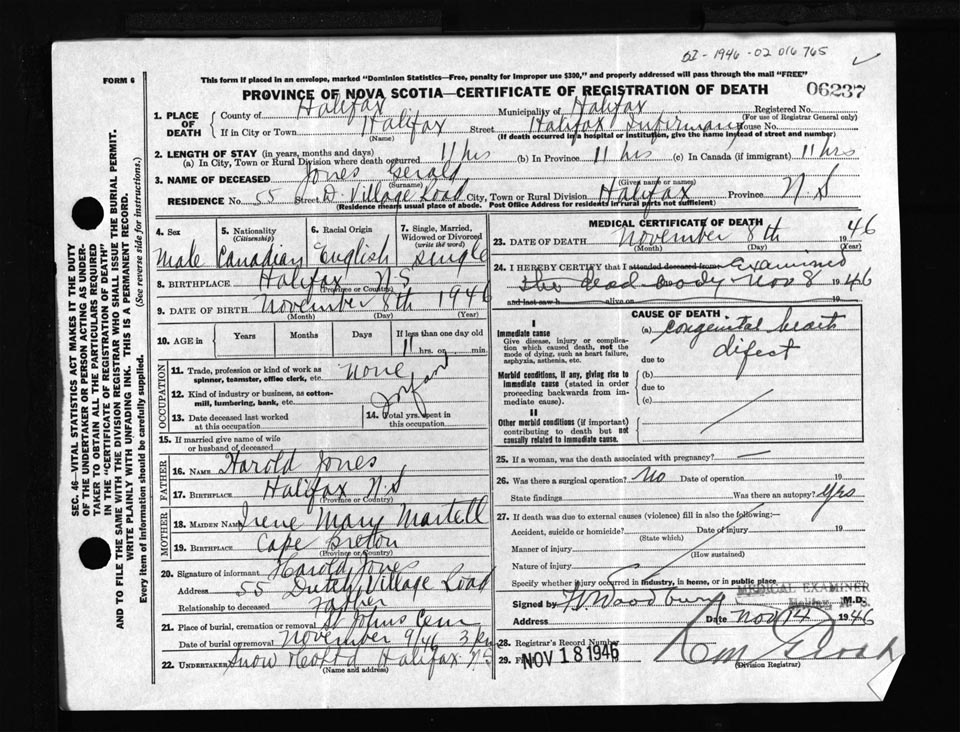 DI-1946-02 016 765
FORM 6
This form if placed in an envelope, marked "Dominion Statistics—Free, penalty for improper use $300," and properly addressed will pass through the mail "FREE"
06237
PROVINCE OF NOVA SCOTIA—CERTIFICATE OF REGISTRATION OF DEATH
1. PLACE OF DEATH
County of Halifax Municipality of Halifax Registered No.
(For use of Registrar General only)
If in City or Town Halifax Street Halifax Infirmary House No.
(Name) (If death occurred in a hospital or institution, give the name instead of street and number)
2. LENGTH OF STAY (in years, months and days)
(a) In City, Town or Rural Division where death occurred 11 hrs (b) In Province 11 hrs (c) In Canada (if immigrant) 11 hrs
3. NAME OF DECEASED Jones Gerald
(Surname) (Given name or names)
RESIDENCE No. 55 Street D. Village Road City, Town or Rural Division Halifax Province N.S
(Residence means usual place of abode. Post Office Address for residents in rural parts not sufficient)
4. Sex 5. Nationality (Citizenship) 6. Racial Origin 7. Single, Married, Widowed or Divorced (write the word)
Male Canadian English single
8. BIRTHPLACE Halifax N.S
(Province or Country)
9. DATE OF BIRTH November 8th 1946
(Month) (Day) (Year)
10. AGE in Years Months Days If less than one day old
11 hrs. or min.
OCCUPATION
11. Trade, profession or kind of work as spinner, teamster, office clerk, etc. none
12. Kind of industry or business, as cotton-mill, lumbering, bank, etc. Infant
13. Date deceased last worked at this occupation
14. Total yrs. spent in this occupation
15. If married give name of wife or husband of deceased
FATHER
16. NAME Harold Jones
17. BIRTHPLACE Halifax N.S
(Province or Country)
MOTHER
18. MAIDEN NAME Irene Mary Martell
19. BIRTHPLACE Cape Breton
(Province or Country)
20. Signature of informant Harold Jones
Address 55 Dutch Village Road
Relationship to deceased Father
21. Place of burial, cremation or removal St Johns Cem
Date of burial or removal November 9/46 3 pm
22. UNDERTAKER Snow & Co Ltd Halifax N.S
(Name and address)
MEDICAL CERTIFICATE OF DEATH
23. DATE OF DEATH November 8th 1946
(Month) (Day) (Year)
24. I HEREBY CERTIFY that I attended deceased from Examined
the dead body Nov 8 1946
and last saw h alive on
CAUSE OF DEATH
I
Immediate cause
Give disease, injury or complication which caused death, not the mode of dying, such as heart failure, asphyxia, asthenia, etc.
(a) congenital heart
difect
due to
Morbid conditions, if any, giving rise to immediate cause (stated in order proceeding backwards from immediate cause).
(b)
due to
(c)
II
Other morbid conditions (if important) contributing to death but not causally related to immediate cause.
25. If a woman, was the death associated with pregnancy? —
26. Was there a surgical operation? No Date of operation 19
State findings Was there an autopsy? Yes
27. If death was due to external causes (violence) fill in also the following:—
Accident, suicide or homicide? Date of injury 19
(State which)
Manner of injury
(How sustained)
Nature of injury
Specify whether injury occurred in industry, in home, or in public place
MEDICAL EXAMINER
Halifax, N. S.
Signed by Woodbury M.D.
Address Date Nov 14 1946
28. Registrar's Record Number
29. NOV 18 1946
(Division Registrar)
SEC. 46—VITAL STATISTICS ACT MAKES IT THE DUTY
OF THE UNDERTAKER OR PERSON ACTING AS UNDER-
TAKER TO OBTAIN ALL THE PARTICULARS REQUIRED
IN THE "CERTIFICATE OF REGISTRATION OF DEATH"
AND TO FILE THE SAME WITH THE DIVISION REGISTRAR WHO SHALL ISSUE THE BURIAL PERMIT.
WRITE PLAINLY WITH UNFADING INK. THIS IS A PERMANENT RECORD.
Every item of information should be carefully supplied. (See reverse side for instructions.)